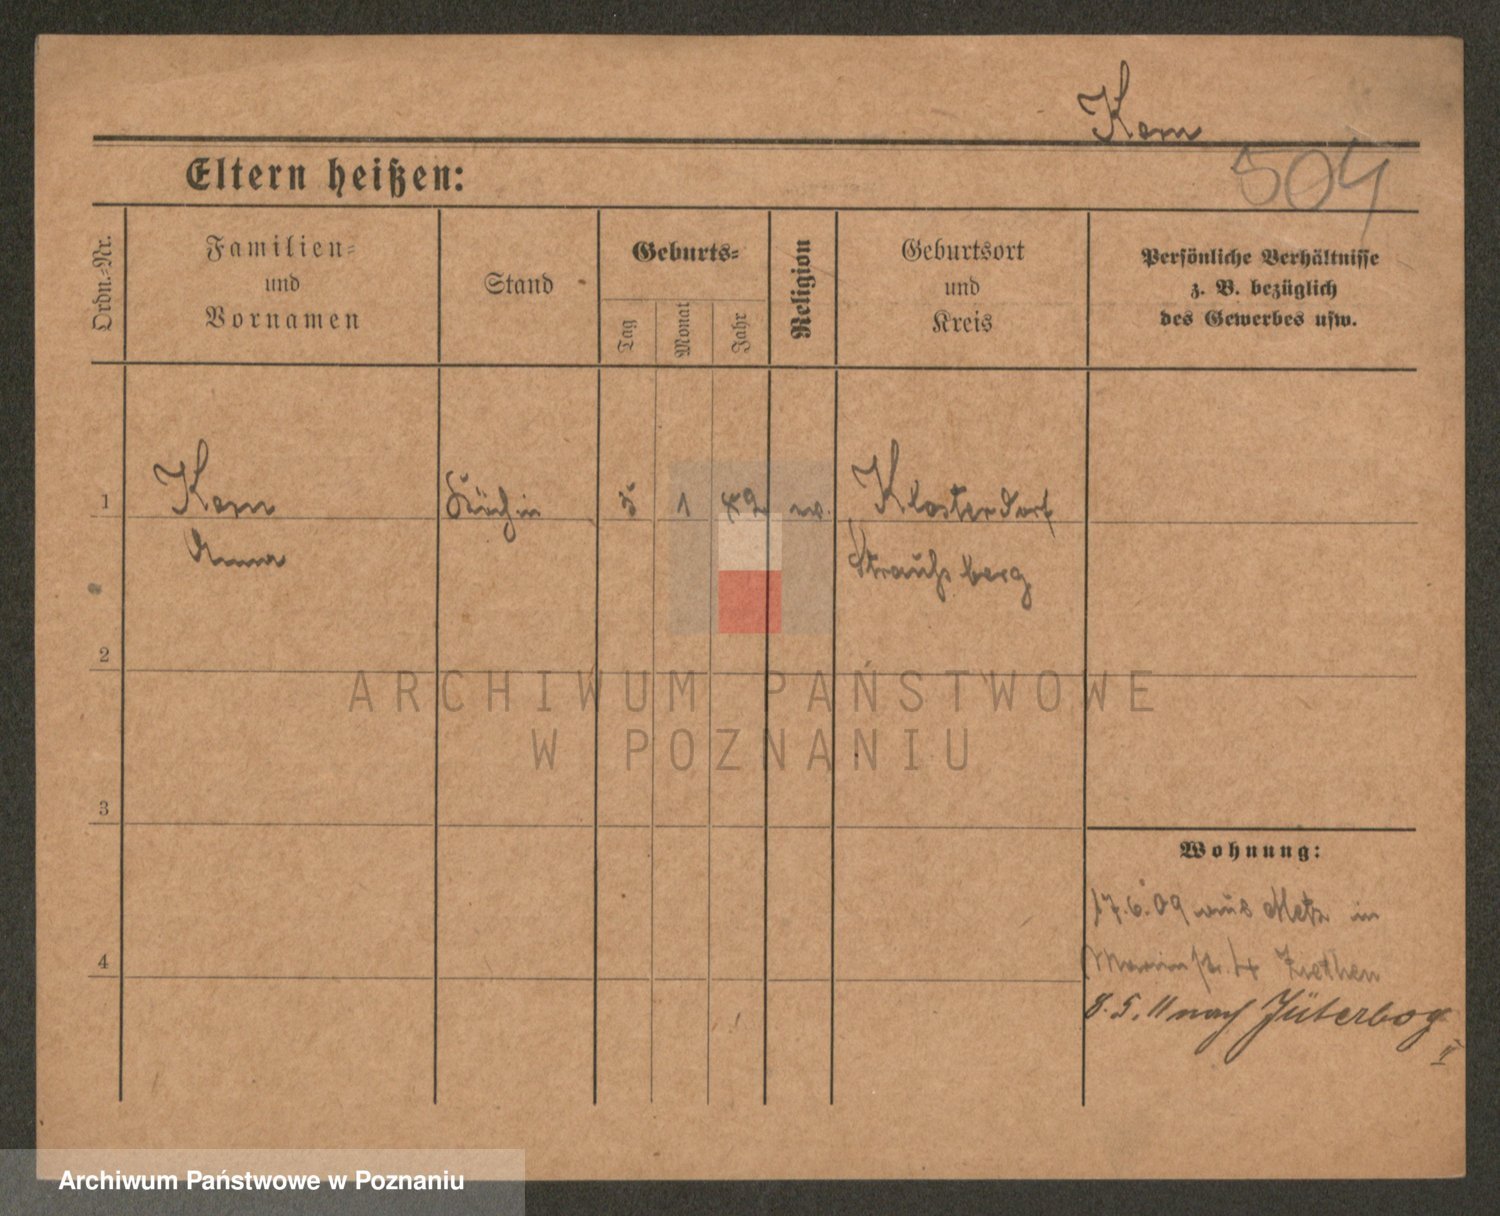 Kem
504
Eltern heißen:
Ordn.-Nr.
Familien-
und
Vornamen
Stand
Geburts-
Tag
Monat
Jahr
Religion
Geburtsort
und
Kreis
Persönliche Verhältnisse
z. B. bezüglich
des Gewerbes usw.
1
Kem
Köchin
5
1
82
ev.
Klosterdorf
Anna
Straußberg
2
ARCHIWUM PAŃSTWOWE
W POZNANIU
3
Wohnung:
17.6.09 aus Metz in
4
str. 4 Ziethen
8.5.11 nach Jüterbog
Archiwum Państwowe w Poznaniu